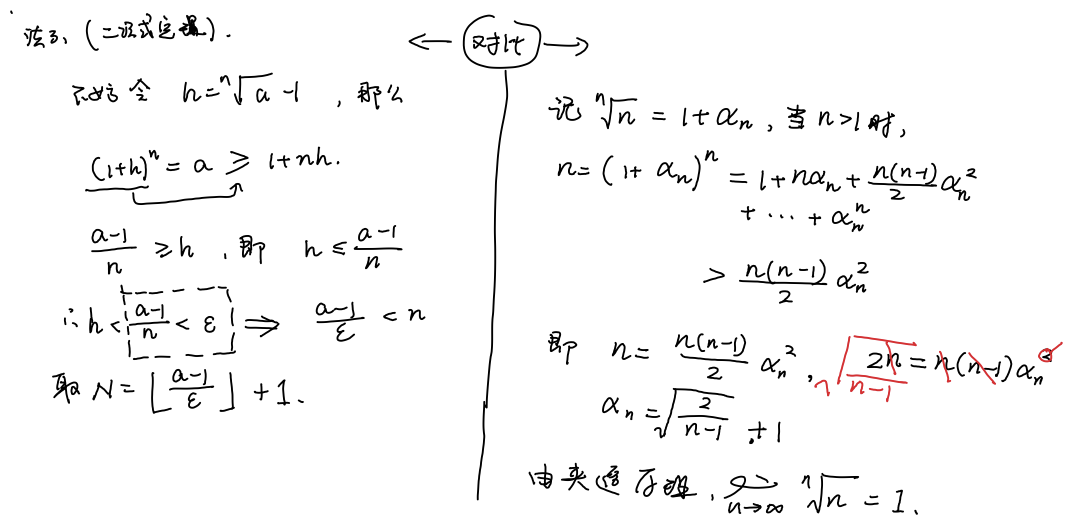 法3、(二项式定理).
不妨令 h = ⁿ√a - 1 , 那么
(1+h)ⁿ = a ≥ 1+nh.
(a-1)/n ≥ h , 即 h ≤ (a-1)/n
∴ h < (a-1)/n < ε ⇒ (a-1)/ε < n
取 N = ⌊(a-1)/ε⌋ + 1.
← 对比 →
记 ⁿ√n = 1+αₙ, 当 n>1 时,
n = (1+αₙ)ⁿ = 1+nαₙ + n(n-1)/2 αₙ²
+ ⋯ + αₙⁿ
> n(n-1)/2 αₙ²
即 n = n(n-1)/2 αₙ² , √(2n/(n-1)) = n(n-1)αₙ²
αₙ = √(2/(n-1)) + 1
由夹逼 , n→∞ ⁿ√n = 1.